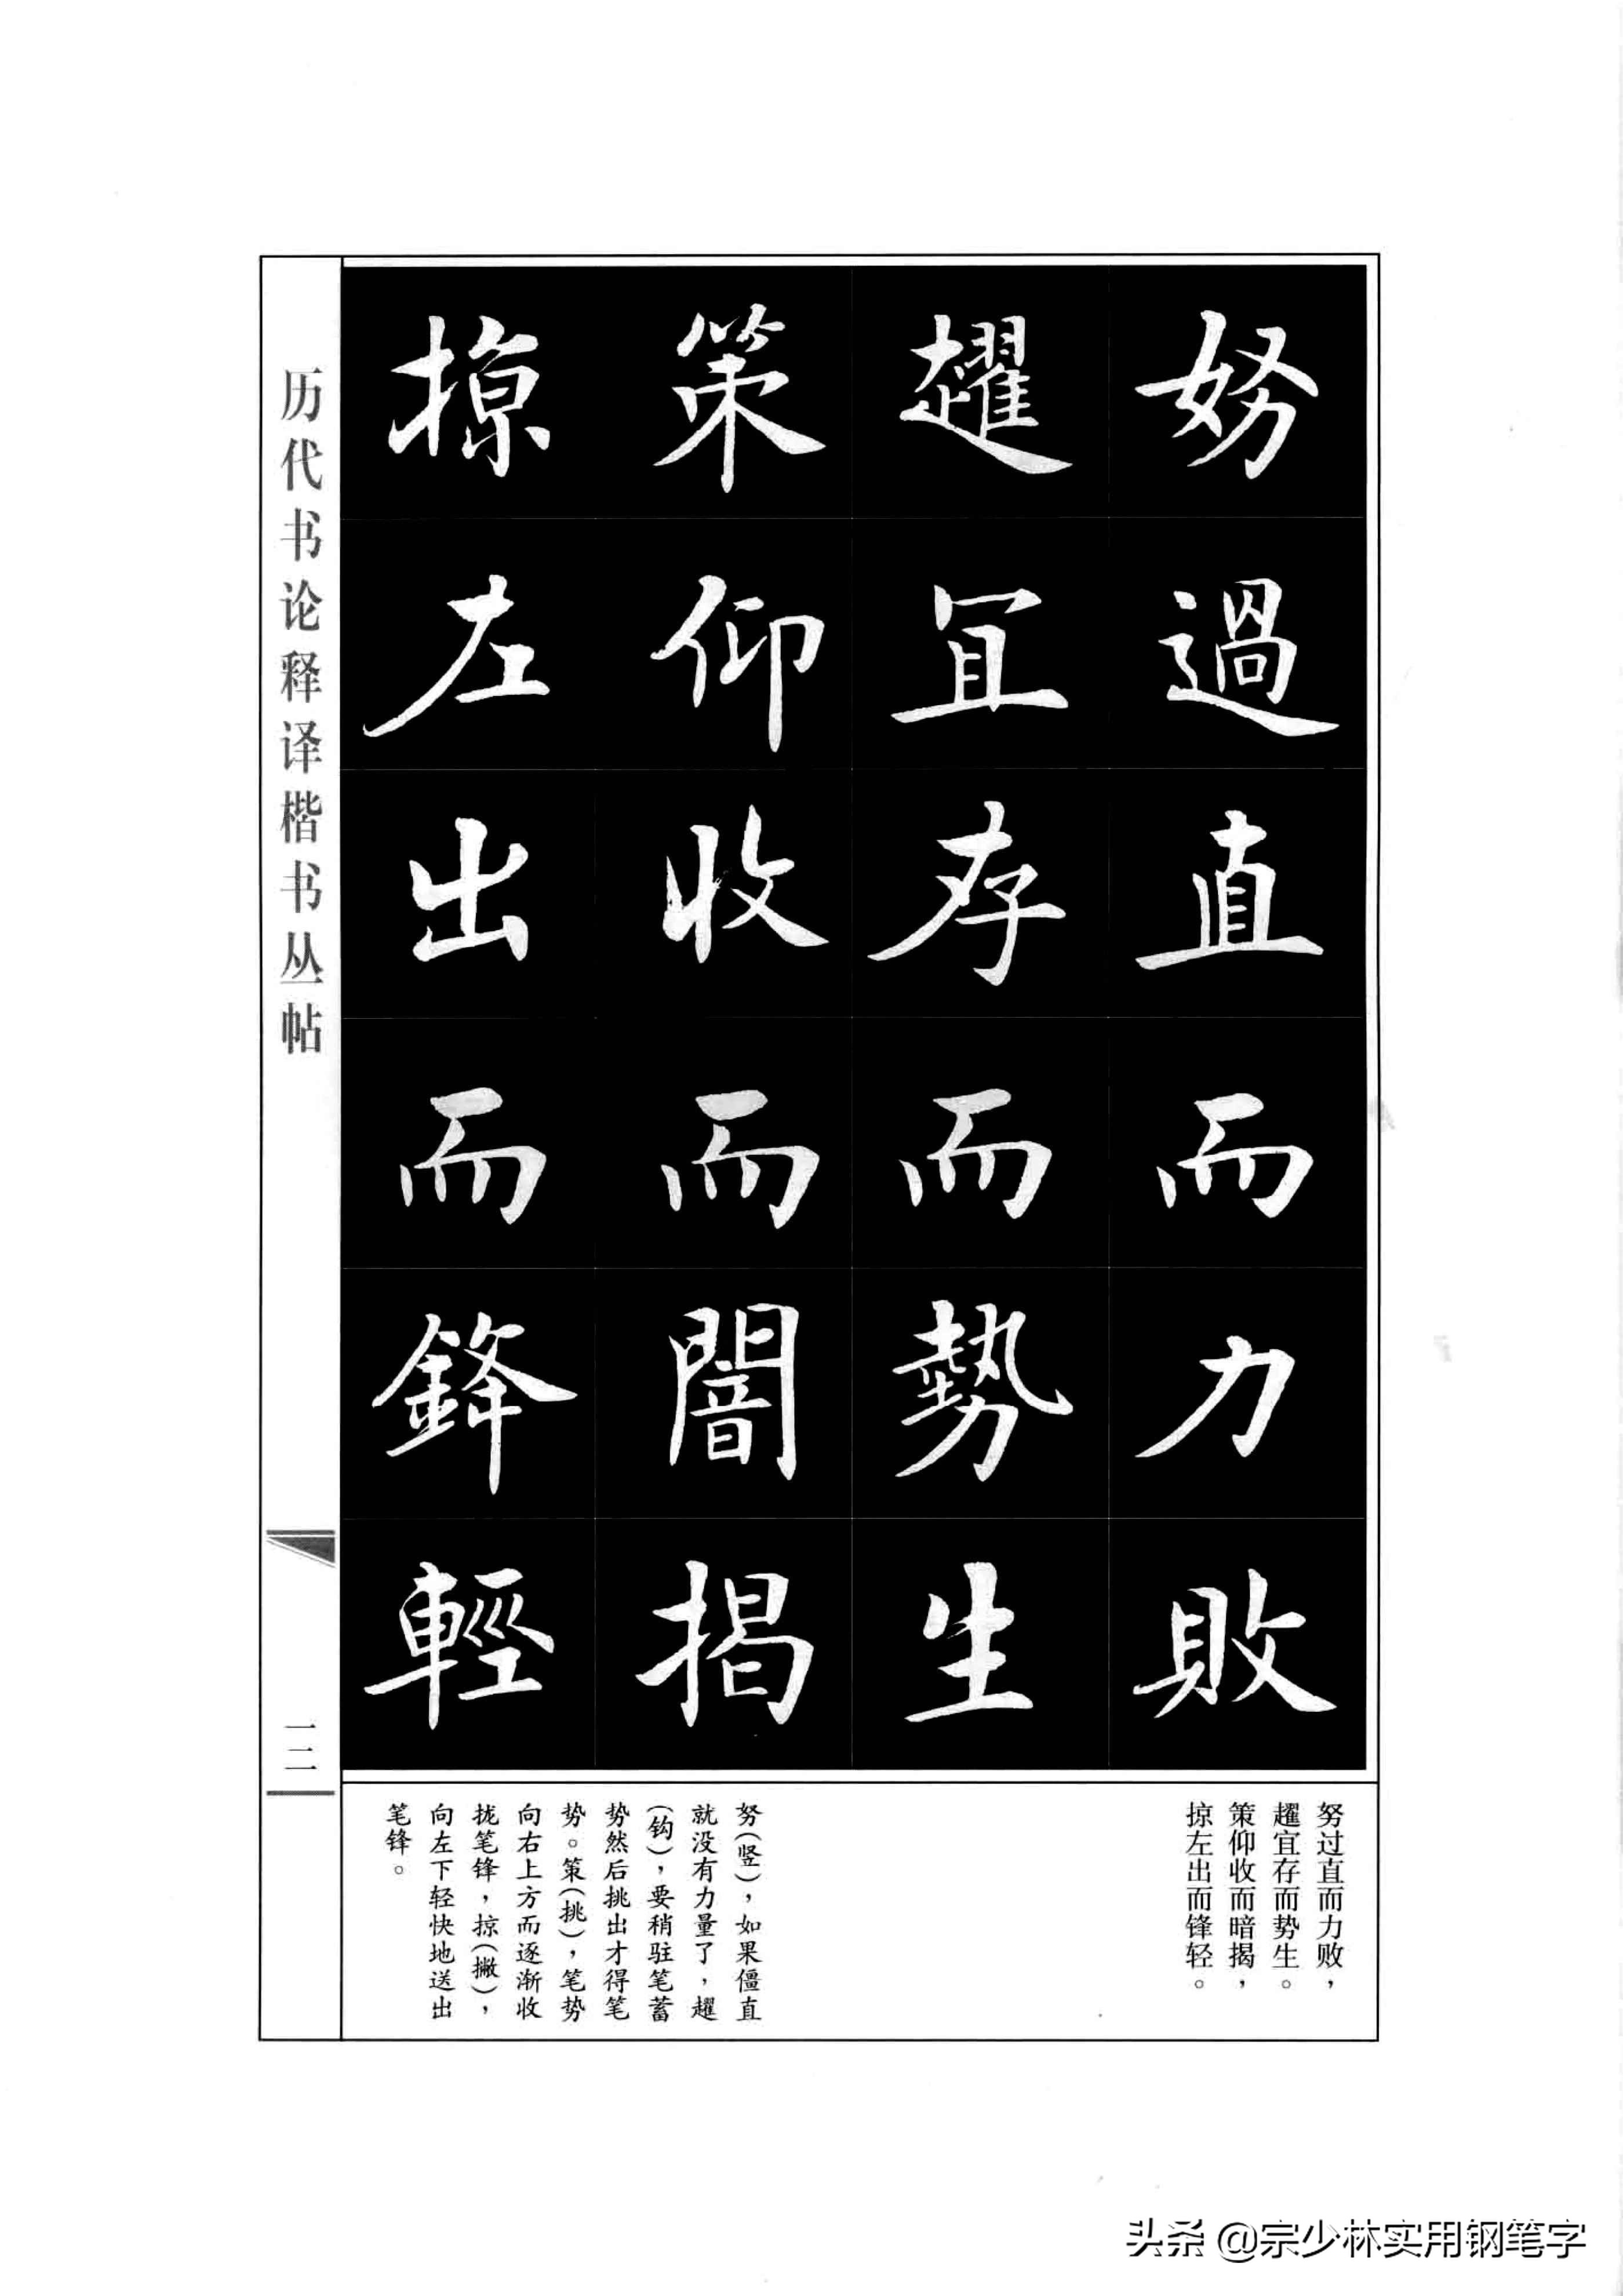 努過直而力敗
趯宜存而勢生
策仰收而闇揭
掠左出而鋒輕
历代书论释译楷书丛帖
一二
努过直而力败，
趯宜存而势生。
策仰收而暗揭，
掠左出而锋轻。
努（竖），如果僵直
就没有力量了，趯
（钩），要稍驻笔蓄
势然后挑出才得笔
势。策（挑），笔势
向右上方而逐渐收
拢笔锋，掠（撇），
向左下轻快地送出
笔锋。
头条 @宗少林实用钢笔字